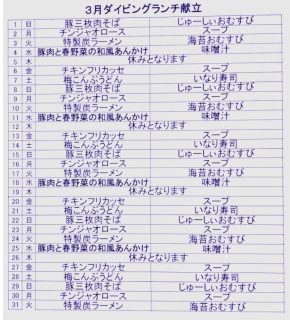 3月ダイビングランチ献立
1 日 豚三枚肉そば じゅーしぃおむすび
2 月 チンジャオロース スープ
3 火 特製炭ラーメン 海苔おむすび
4 水 豚肉と春野菜の和風あんかけ 味噌汁
5 木 休みとなります
6 金 チキンフリカッセ スープ
7 土 梅こんぶうどん いなり寿司
8 日 豚三枚肉そば じゅーしぃおむすび
9 月 チンジャオロース スープ
10 火 特製炭ラーメン 海苔おむすび
11 水 豚肉と春野菜の和風あんかけ 味噌汁
12 木 休みとなります
13 金 チキンフリカッセ スープ
14 土 梅こんぶうどん いなり寿司
15 日 豚三枚肉そば じゅーしぃおむすび
16 月 チンジャオロース スープ
17 火 特製炭ラーメン 海苔おむすび
18 水 豚肉と春野菜の和風あんかけ 味噌汁
19 木 休みとなります
20 金 チキンフリカッセ スープ
21 土 梅こんぶうどん いなり寿司
22 日 豚三枚肉そば じゅーしぃおむすび
23 月 チンジャオロース スープ
24 火 特製炭ラーメン 海苔おむすび
25 水 豚肉と春野菜の和風あんかけ 味噌汁
26 木 休みとなります
27 金 チキンフリカッセ スープ
28 土 梅こんぶうどん いなり寿司
29 日 豚三枚肉そば じゅーしぃおむすび
30 月 チンジャオロース スープ
31 火 特製炭ラーメン 海苔おむすび